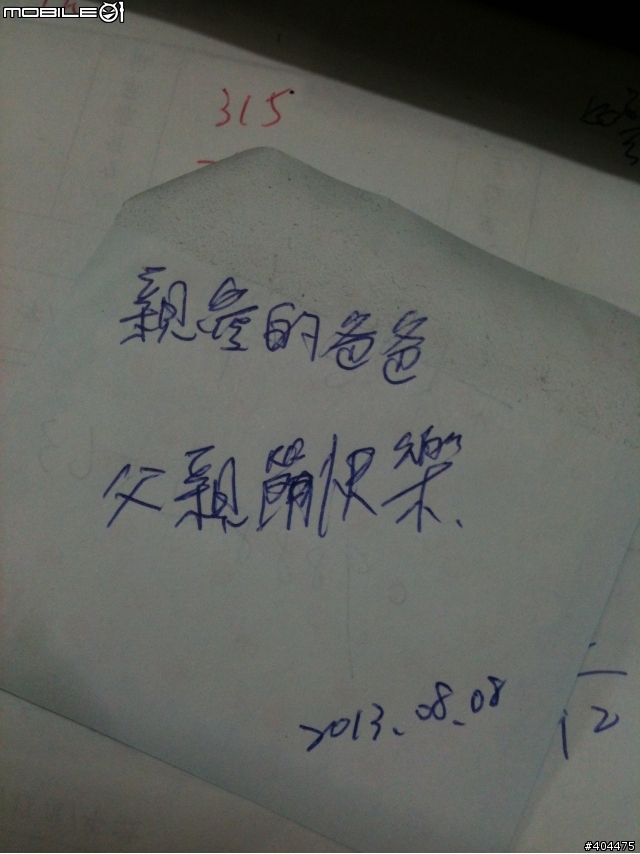 MOBILE01
315
親愛的爸爸
父親節快樂、
2013.08.08
12
#404475